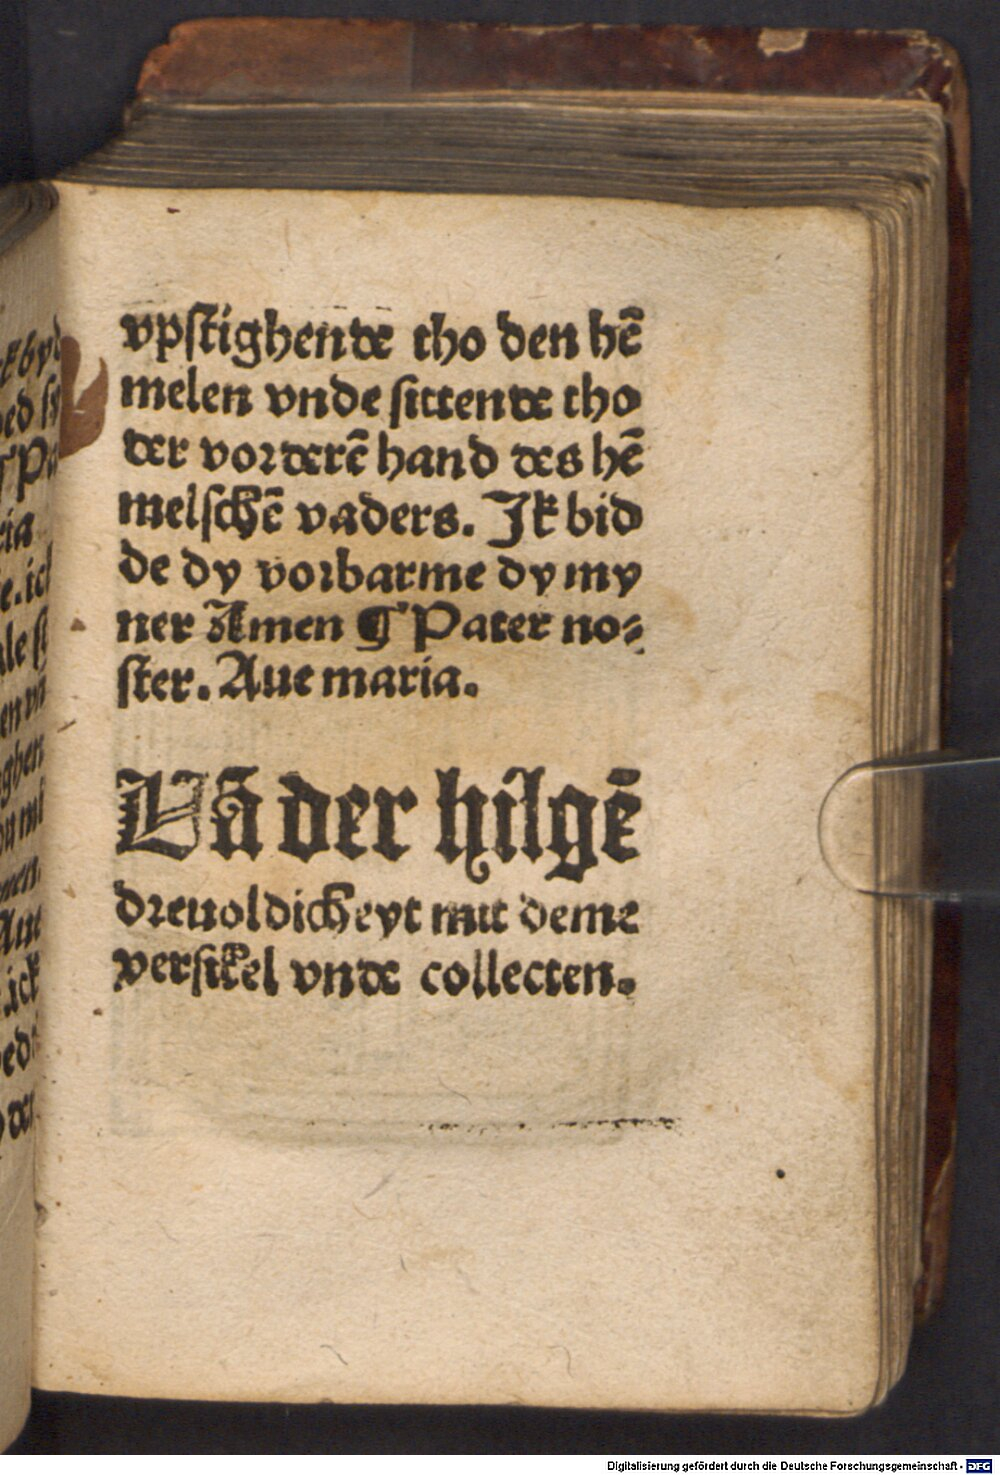 vpſtighende tho den hē
melen vnde ſittende tho
der vorderē hand des hē
melſchē vaders. Ik bid
de dy vorbarme dy my
ner Amen ¶ Pater no⸗
ſter. Aue maria.
Vā der hilgē
dreuoldicheyt mit deme
verſikel vnde collecten.
Digitalisierung gefördert durch die Deutsche Forschungsgemeinschaft - DFG